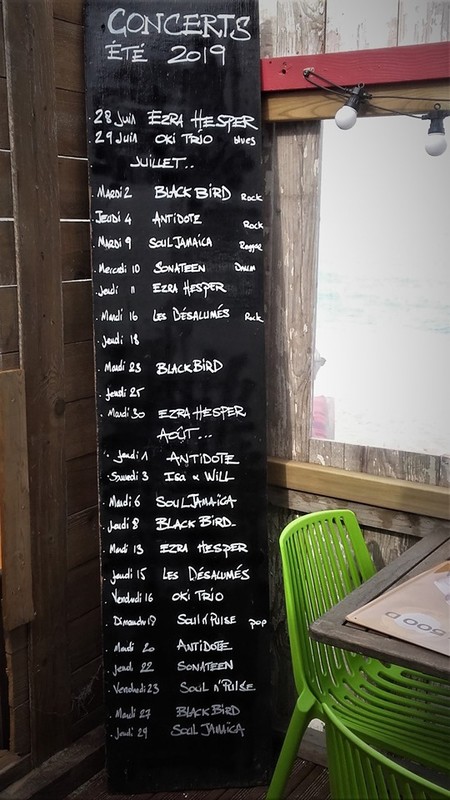 CONCERTS
ÉTÉ 2019
. 28 Juin EZRA HESPER
. 29 Juin OKI TRIO blues
JUILLET..
. MARDI 2 BLACK BIRD Rock
. JEUDI 4 ANTIDOTE Rock
. MARDI 9 SOUL JAMAÏCA Reggae
. Mercredi 10 SONATEEN
. Jeudi 11 EZRA HESPER
. Mardi 16 LES DÉSALUMÉS Rock
. Jeudi 18
. Mardi 23 BLACK BIRD
. Jeudi 25
. Mardi 30 EZRA HESPER
AOÛT...
. Jeudi 1 ANTIDOTE
. Samedi 3 ISA & WILL
. Mardi 6 SOUL JAMAÏCA
. Jeudi 8 BLACK BIRD.
. Mardi 13 EZRA HESPER
. Jeudi 15 LES DÉSALUMÉS
. Vendredi 16 OKI TRIO
. Dimanche SOUL n'PULSE pop
. Mardi 20 ANTIDOTE
. Jeudi 22 SONATEEN
. Vendredi 23 SOUL n'PULSE
. Mardi 27 BLACK BIRD
. Jeudi 29 SOUL JAMAÏCA